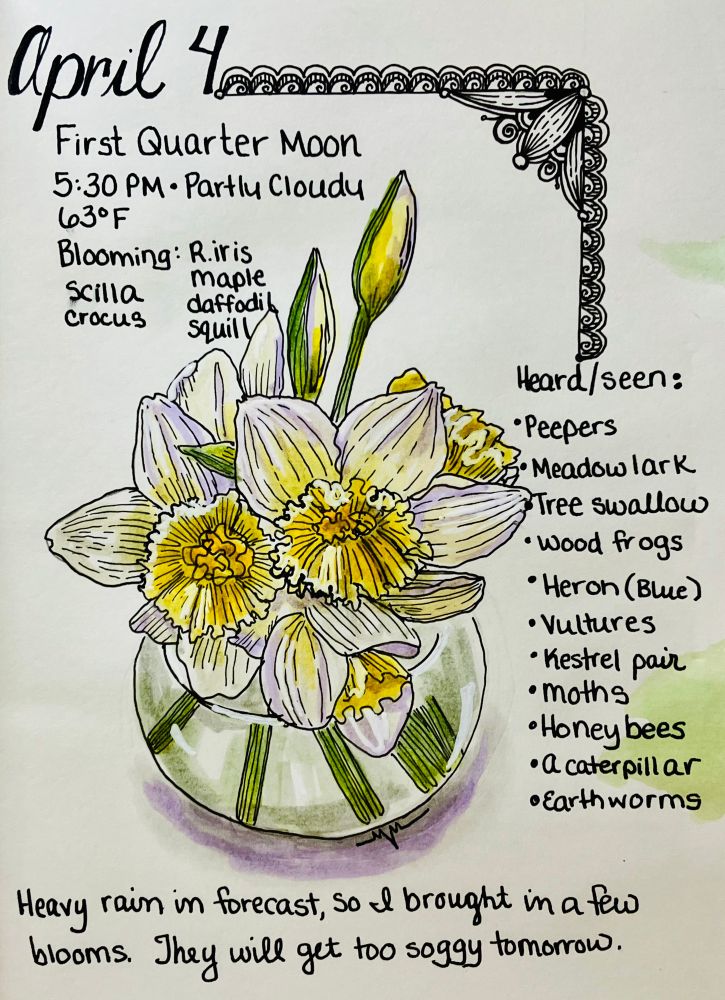 April 4
First Quarter Moon
5:30 PM • Partly Cloudy
63°F
Blooming: R.iris
scilla maple
crocus daffodil
squill
Heard/seen:
• Peepers
• Meadowlark
• Tree swallow
• wood frogs
• Heron (Blue)
• Vultures
• Kestrel pair
• moths
• Honey bees
• a caterpillar
• Earthworms
MJM
Heavy rain in forecast, so I brought in a few
blooms. They will get too soggy tomorrow.